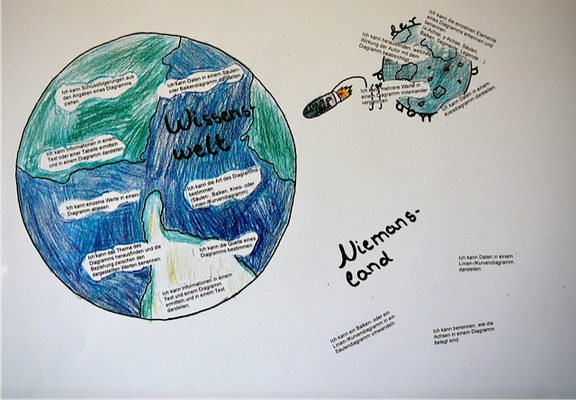 Ich kann Schlussfolgerungen aus
den Angaben eines Diagramms
ziehen
Ich kann Daten in einem Säulen-
oder Balkendiagramm
Wissens-
welt
Ich kann Informationen in einem
Text oder einer Tabelle ermitteln
und in einem Diagramm darstellen
Ich kann die Art des Diagramms
bestimmen
(Säulen-, Balken, Kreis- oder
Linien-/Kurvendiagramm)
Ich kann einzelne Werte in einem
Diagramm ablesen
Ich kann das Thema des
Diagramms herausfinden und die
Beziehung zwischen den
dargestellten Werten benennen
Ich kann die Quelle eines
Diagramms bestimmen
Ich kann Informationen in einem
Text und einem Diagramm
ermitteln und in einem Text
darstellen
der
Ich kann die einzelnen Elemente
eines Diagramms erkennen und
benennen
Ich kann herausfinden, welche
Wirkung der Autor mit dem
Diagramm beabsichtigt
Ich kann mehrere Werte in
einem Diagramm miteinander
vergleichen
Ich kann Daten in einem
Kreisdiagramm darstellen
Niemans-
land
Ich kann Daten in einem
Linien-/Kurvendiagramm
darstellen
Ich kann ein Balken- oder ein
Linien-/Kurvendiagramm in ein
Säulendiagramm umwandeln
Ich kann benennen, wie die
Achsen in einem Diagramm
belegt sind.